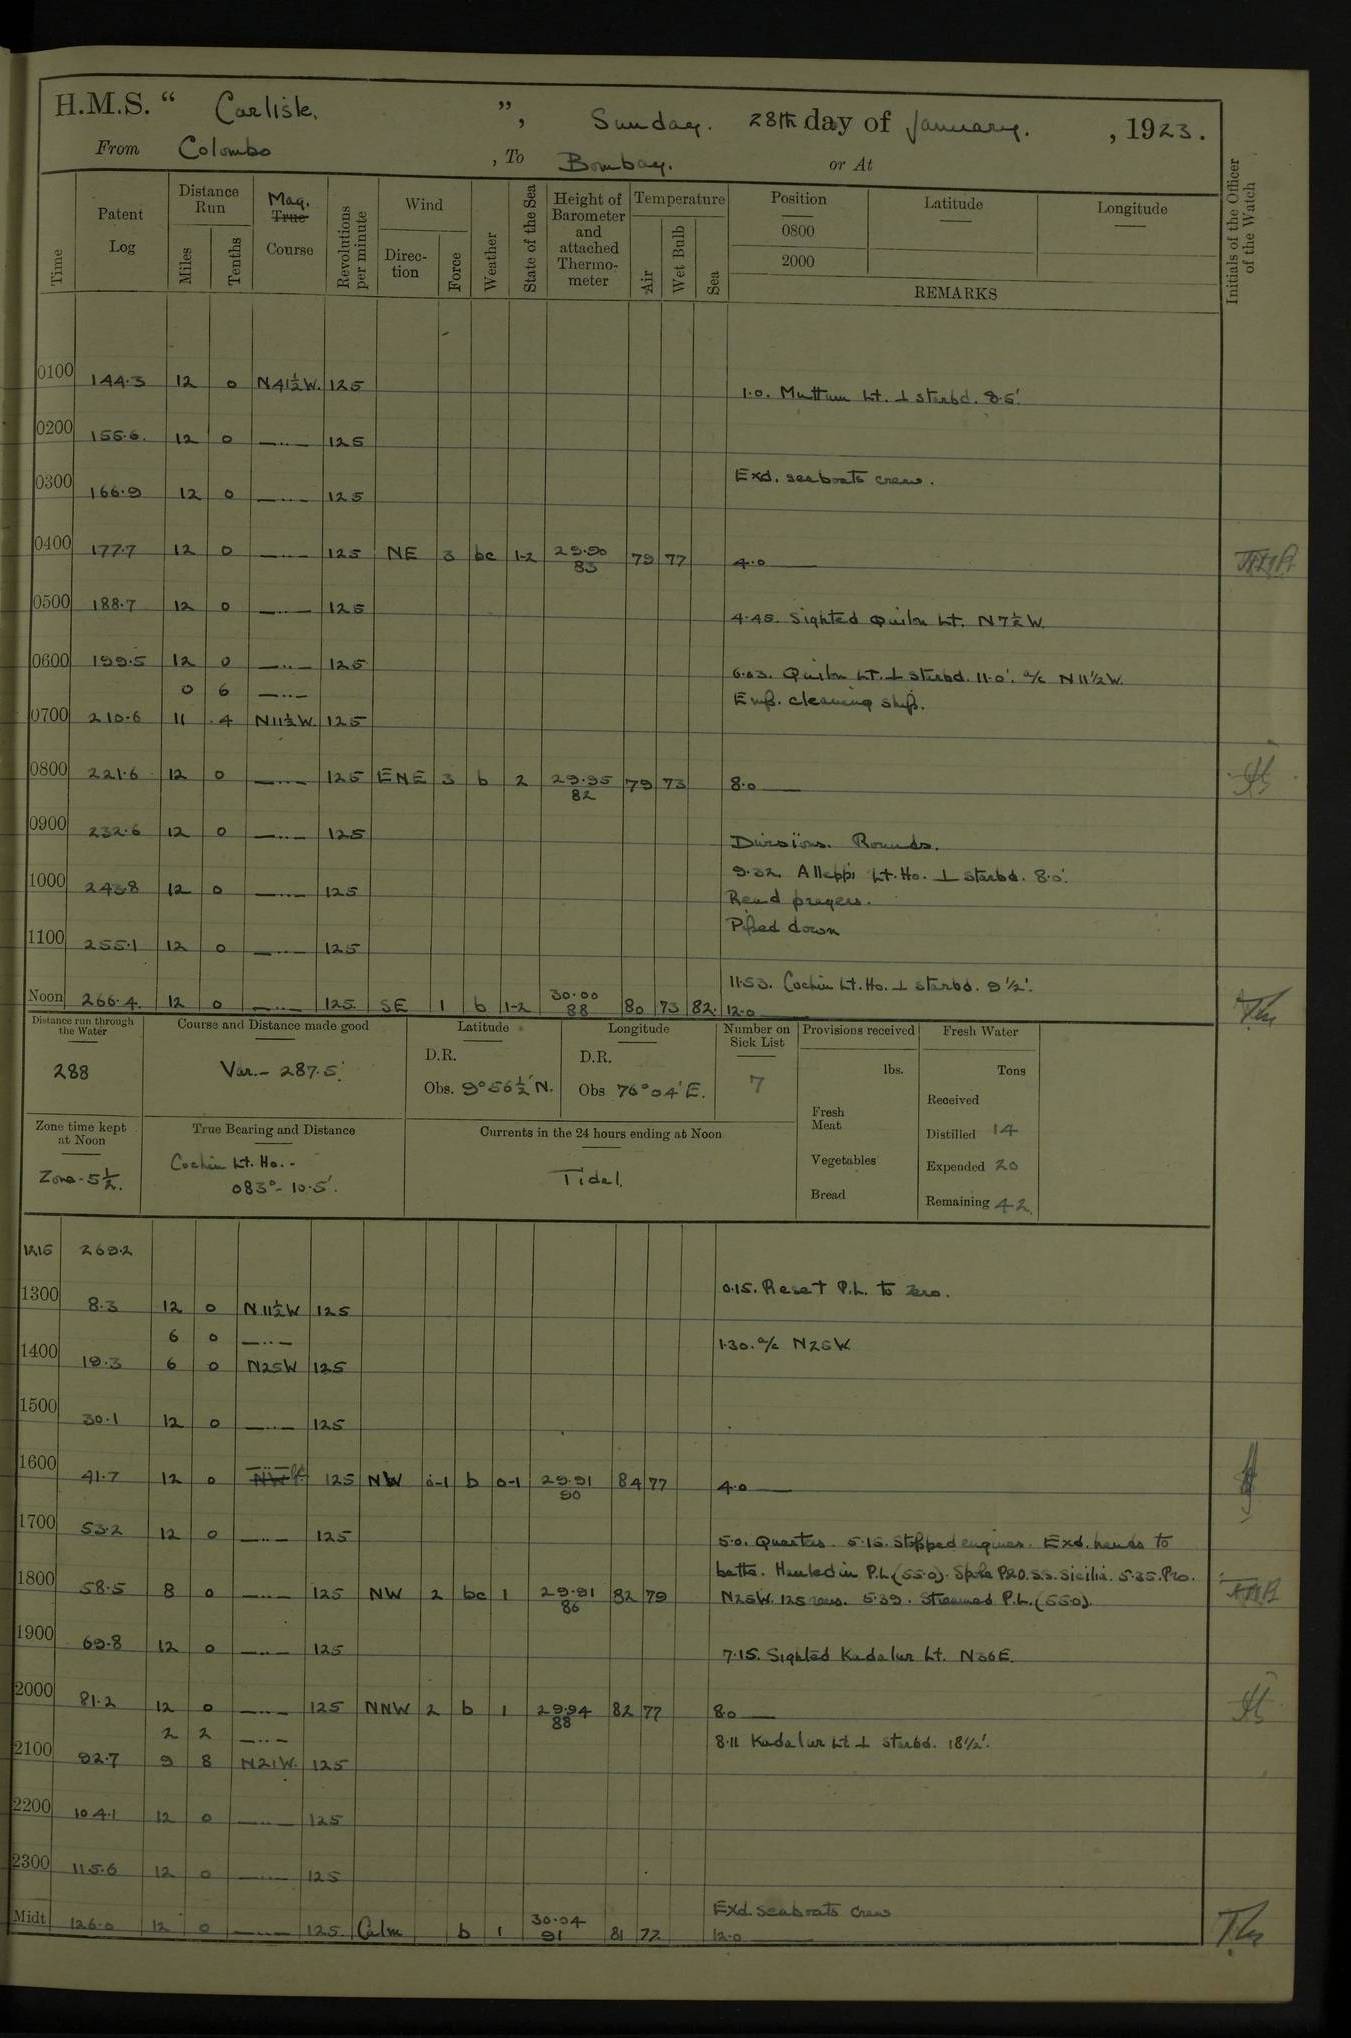 H.M.S. “ Carlisle. ”, Sunday. 28th day of January. , 1923.
From Colombo , To Bombay. or At
Time
Patent Log
Distance Run
Miles
Tenths
Mag.
True
Course
Revolutions per minute
Wind
Direction
Force
Weather
State of the Sea
Height of Barometer and attached Thermometer
Temperature
Air
Wet Bulb
Sea
Position Latitude Longitude
0800
2000
REMARKS
Initials of the Officer of the Watch
0100 144.3 12 0 N41½W. 125
1.0. Muttum Lt. ⊥ starbd. 8.5'.
0200 155.6. 12 0 —..— 125
Exd. seaboats crew.
0300 166.9 12 0 —..— 125
0400 177.7 12 0 —..— 125 NE 3 bc 1-2 29.90 83 79 77 4.0 ——
0500 188.7 12 0 —..— 125
4.45. Sighted Quilon Lt. N7½W.
0600 199.5 12 0 —..— 125
6.03. Quilon Lt. ⊥ starbd. 11.0'. a/c N11½W.
0 6 —..—
Emp. cleaning ship.
0700 210.6 11 .4 N11½W. 125
0800 221.6 12 0 —..— 125 ENE 3 b 2 29.95 82 79 73 8.0 ——
0900 232.6 12 0 —..— 125
Divisions. Rounds.
9.32. Alleppi Lt. Ho. ⊥ starbd. 8.0'.
1000 243.8 12 0 —..— 125
Read prayers.
Piped down
1100 255.1 12 0 —..— 125
11.53. Cochin Lt. Ho. ⊥ starbd. 9½'.
Noon 266.4. 12 0 —..— 125. SE 1 b 1-2 30.00 88 80 73 82. 12.0 ——
Distance run through the Water
288
Course and Distance made good
Var. – 287.5'.
Latitude
D.R.
Obs. 9°56½'N.
Longitude
D.R.
Obs 76°04'E.
Number on Sick List
7
Provisions received
lbs.
Fresh Meat
Vegetables
Bread
Fresh Water
Tons
Received
Distilled 14
Expended 20
Remaining 42.
Zone time kept at Noon
Zone -5½.
True Bearing and Distance
Cochin Lt. Ho. -
083° - 10.5'.
Currents in the 24 hours ending at Noon
Tidal.
1215 269.2
0.15. Reset P.L. to Zero.
1300 8.3 12 0 N11½W 125
6 0 —..—
1.30. a/c N25W.
1400 19.3 6 0 N25W 125
1500 30.1 12 0 —..— 125
1600 41.7 12 0 —..— NW 125 NW 0-1 b 0-1 29.91 90 84 77 4.0 ——
1700 53.2 12 0 —..— 125
5.0. Quarters. 5.15. Stopped engines. Exd. hands to
bathe. Hauled in P.L. (55.0). Spoke P&O. S.S. Sicilia. 5.35. Pro.
1800 58.5 8 0 —..— 125 NW 2 bc 1 29.91 86 82 79 N25W. 125 revs. 5.39. Streamed P.L. (55.0).
1900 69.8 12 0 —..— 125
7.15. Sighted Kadalur Lt. N36E.
2000 81.2 12 0 —..— 125 NNW 2 b 1 29.94 88 82 77 8.0 ——
2 2 —..—
8.11 Kadalur Lt ⊥ starbd. 18½'.
2100 92.7 9 8 N21W. 125
2200 104.1 12 0 —..— 125
2300 115.6 12 0 —..— 125
Exd. seaboats crew
Midt 126.0 12 0 —..— 125. Calm b 1 30.04 91 81 77 12.0 ——